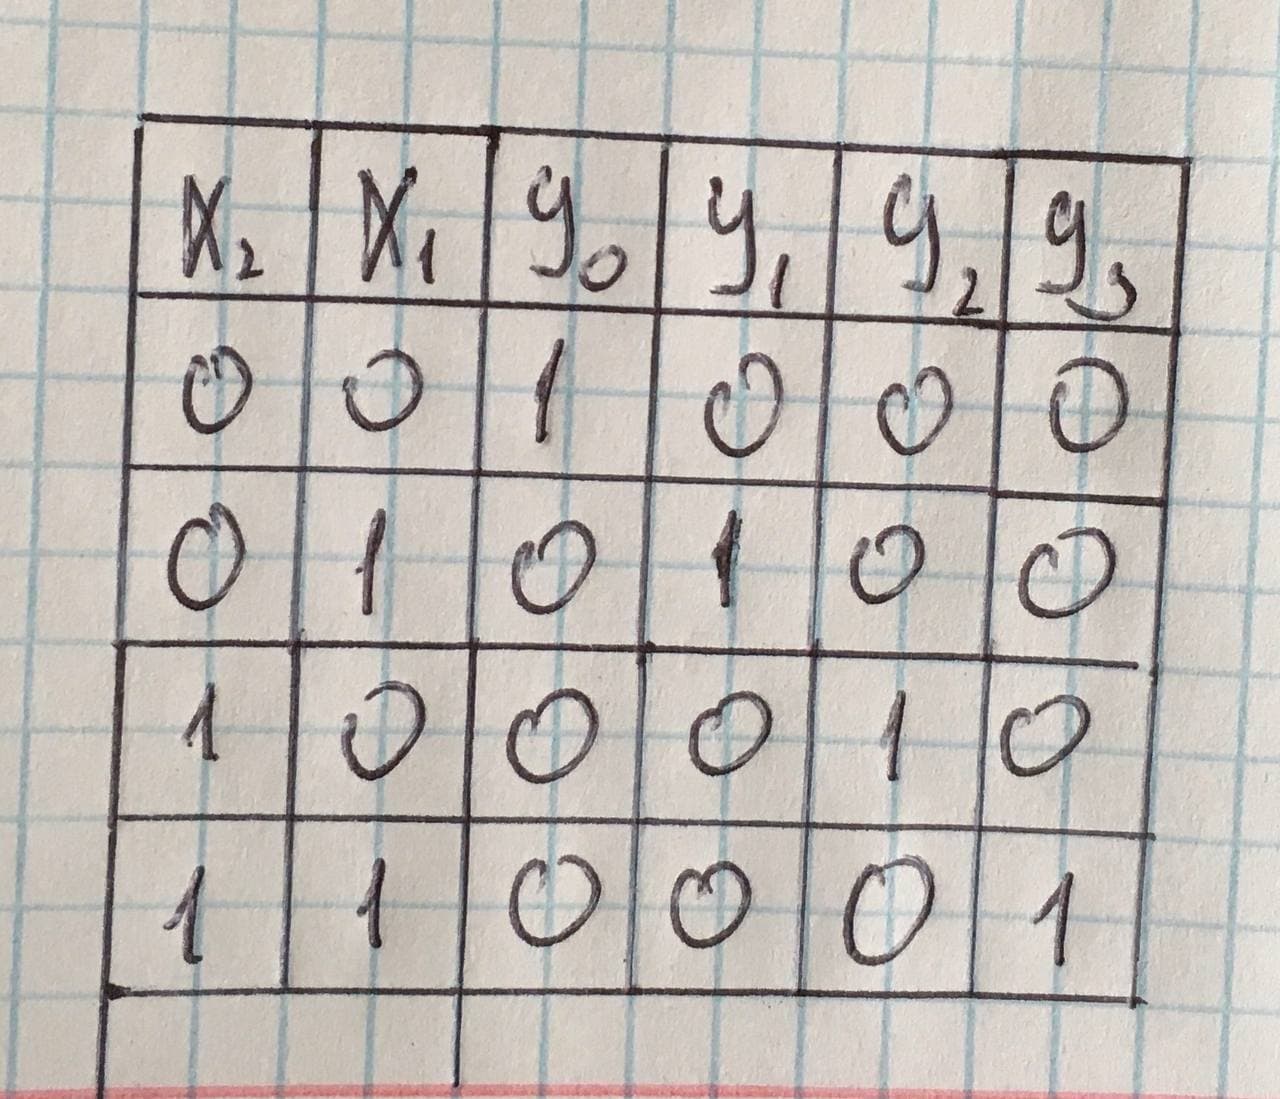 x₂ x₁ y₀ y₁ y₂ y₃
0 0 1 0 0 0
0 1 0 1 0 0
1 0 0 0 1 0
1 1 0 0 0 1